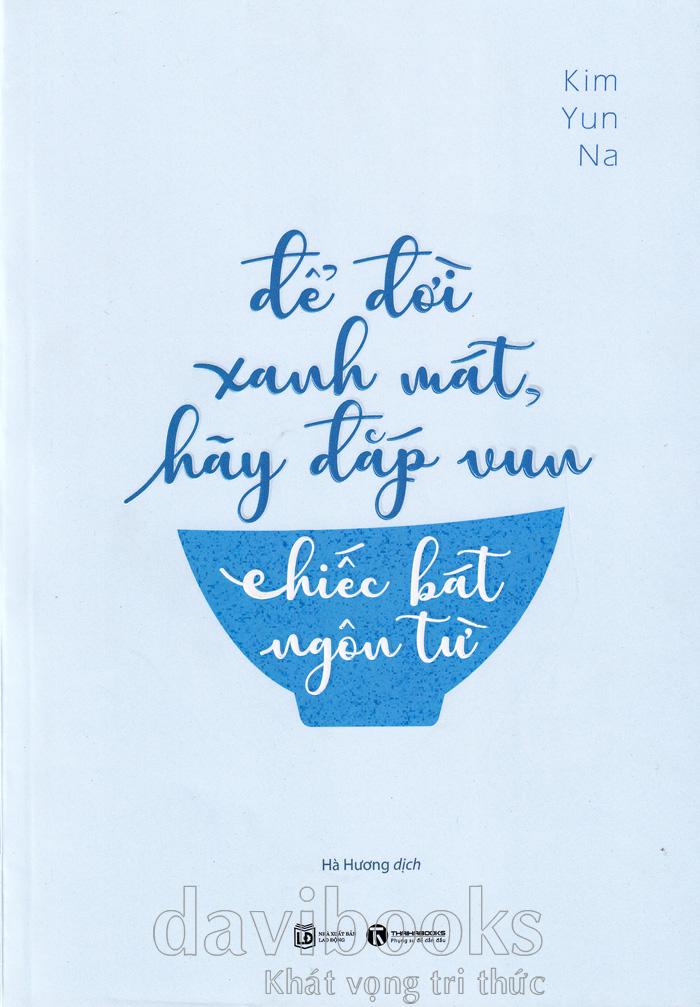 Kim
Yun
Na
để đời
xanh mát,
hãy đắp vun
chiếc bát
ngôn từ
Hà Hương dịch
davibooks
NHÀ XUẤT BẢN
LAO ĐỘNG
THAIHABOOKS
Phụng sự để dẫn đầu
Khát vọng tri thức